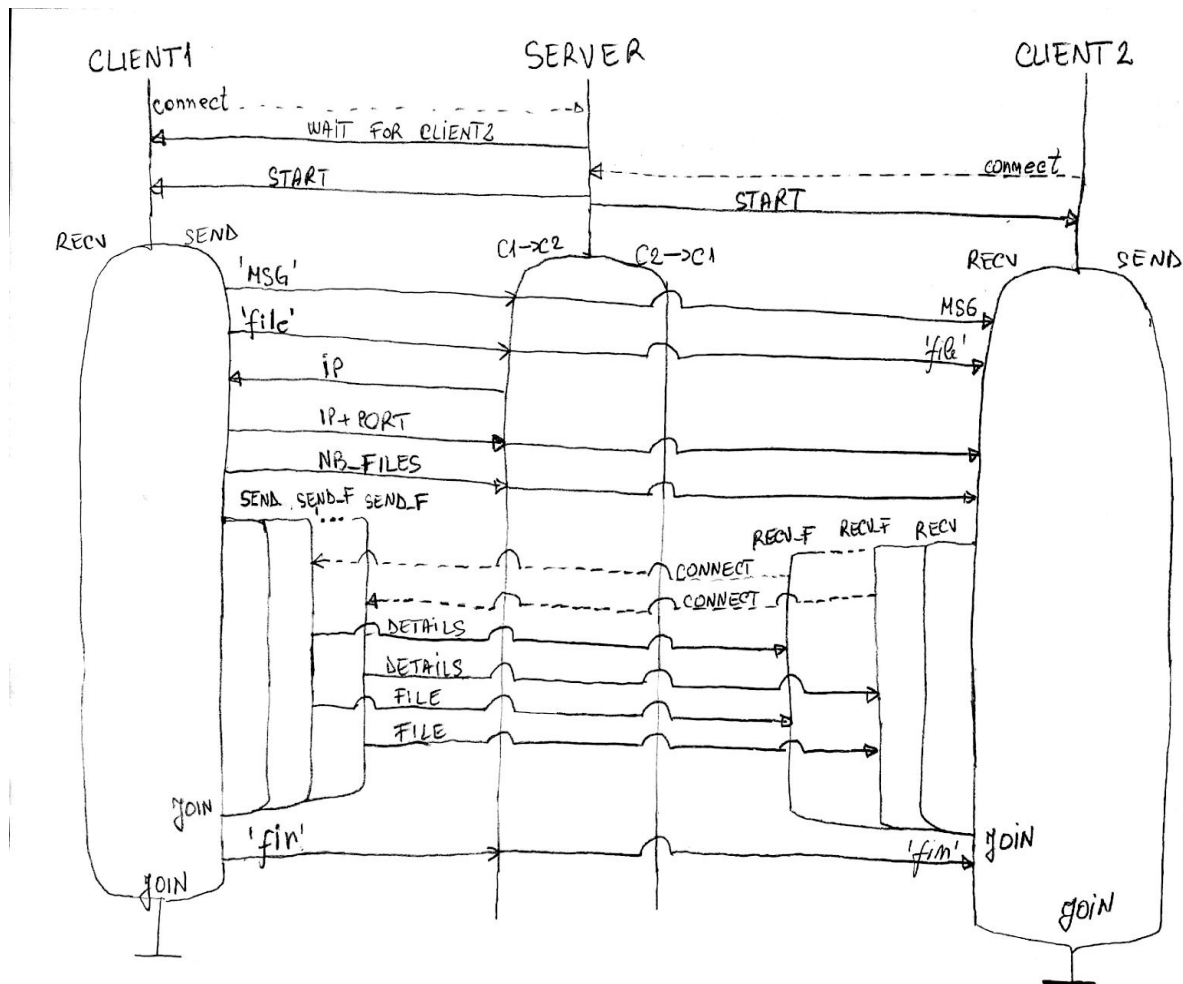 CLIENT1 SERVER CLIENT2
connect
WAIT FOR CLIENT2
connect
START
START
RECV SEND C1→C2 C2→C1 RECV SEND
'MSG' MSG
'file' 'file'
IP
IP+PORT
NB_FILES
SEND SEND_F ... SEND_F
RECV_F RECV_F RECV
CONNECT
CONNECT
DETAILS
DETAILS
FILE
FILE
JOIN
JOIN
'fin' 'fin'
JOIN
JOIN